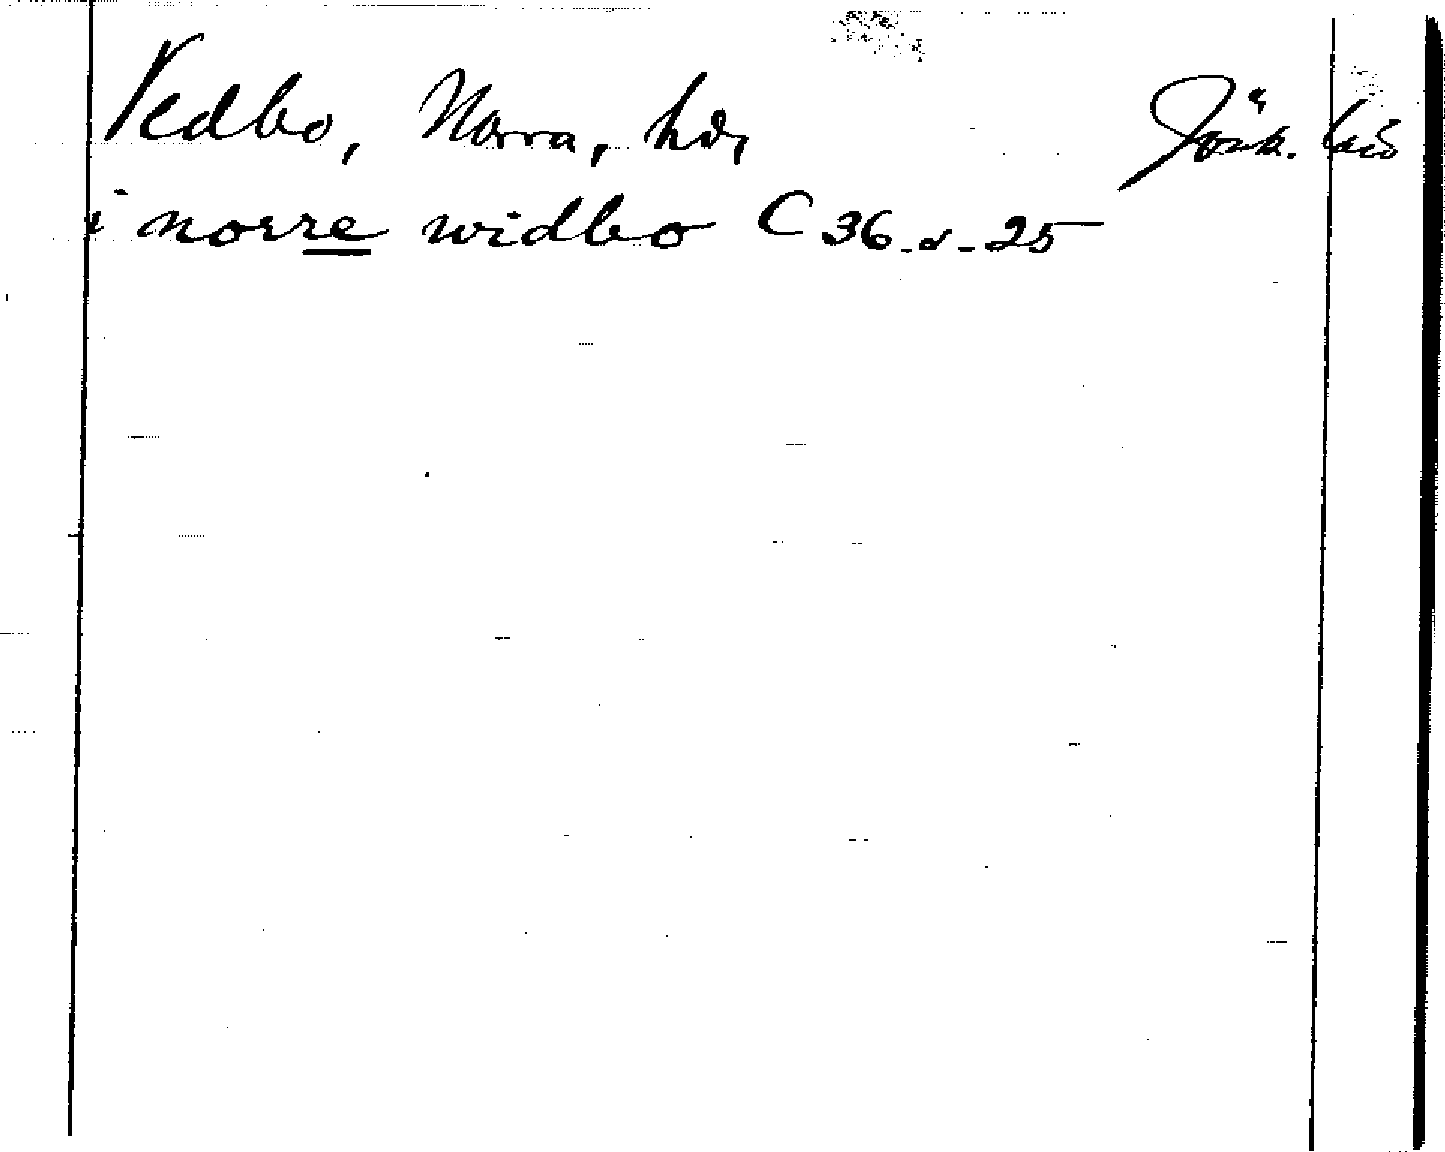 Vedbo, Norra, hd, Jönk. län
i norre widbo C 36 s. 25